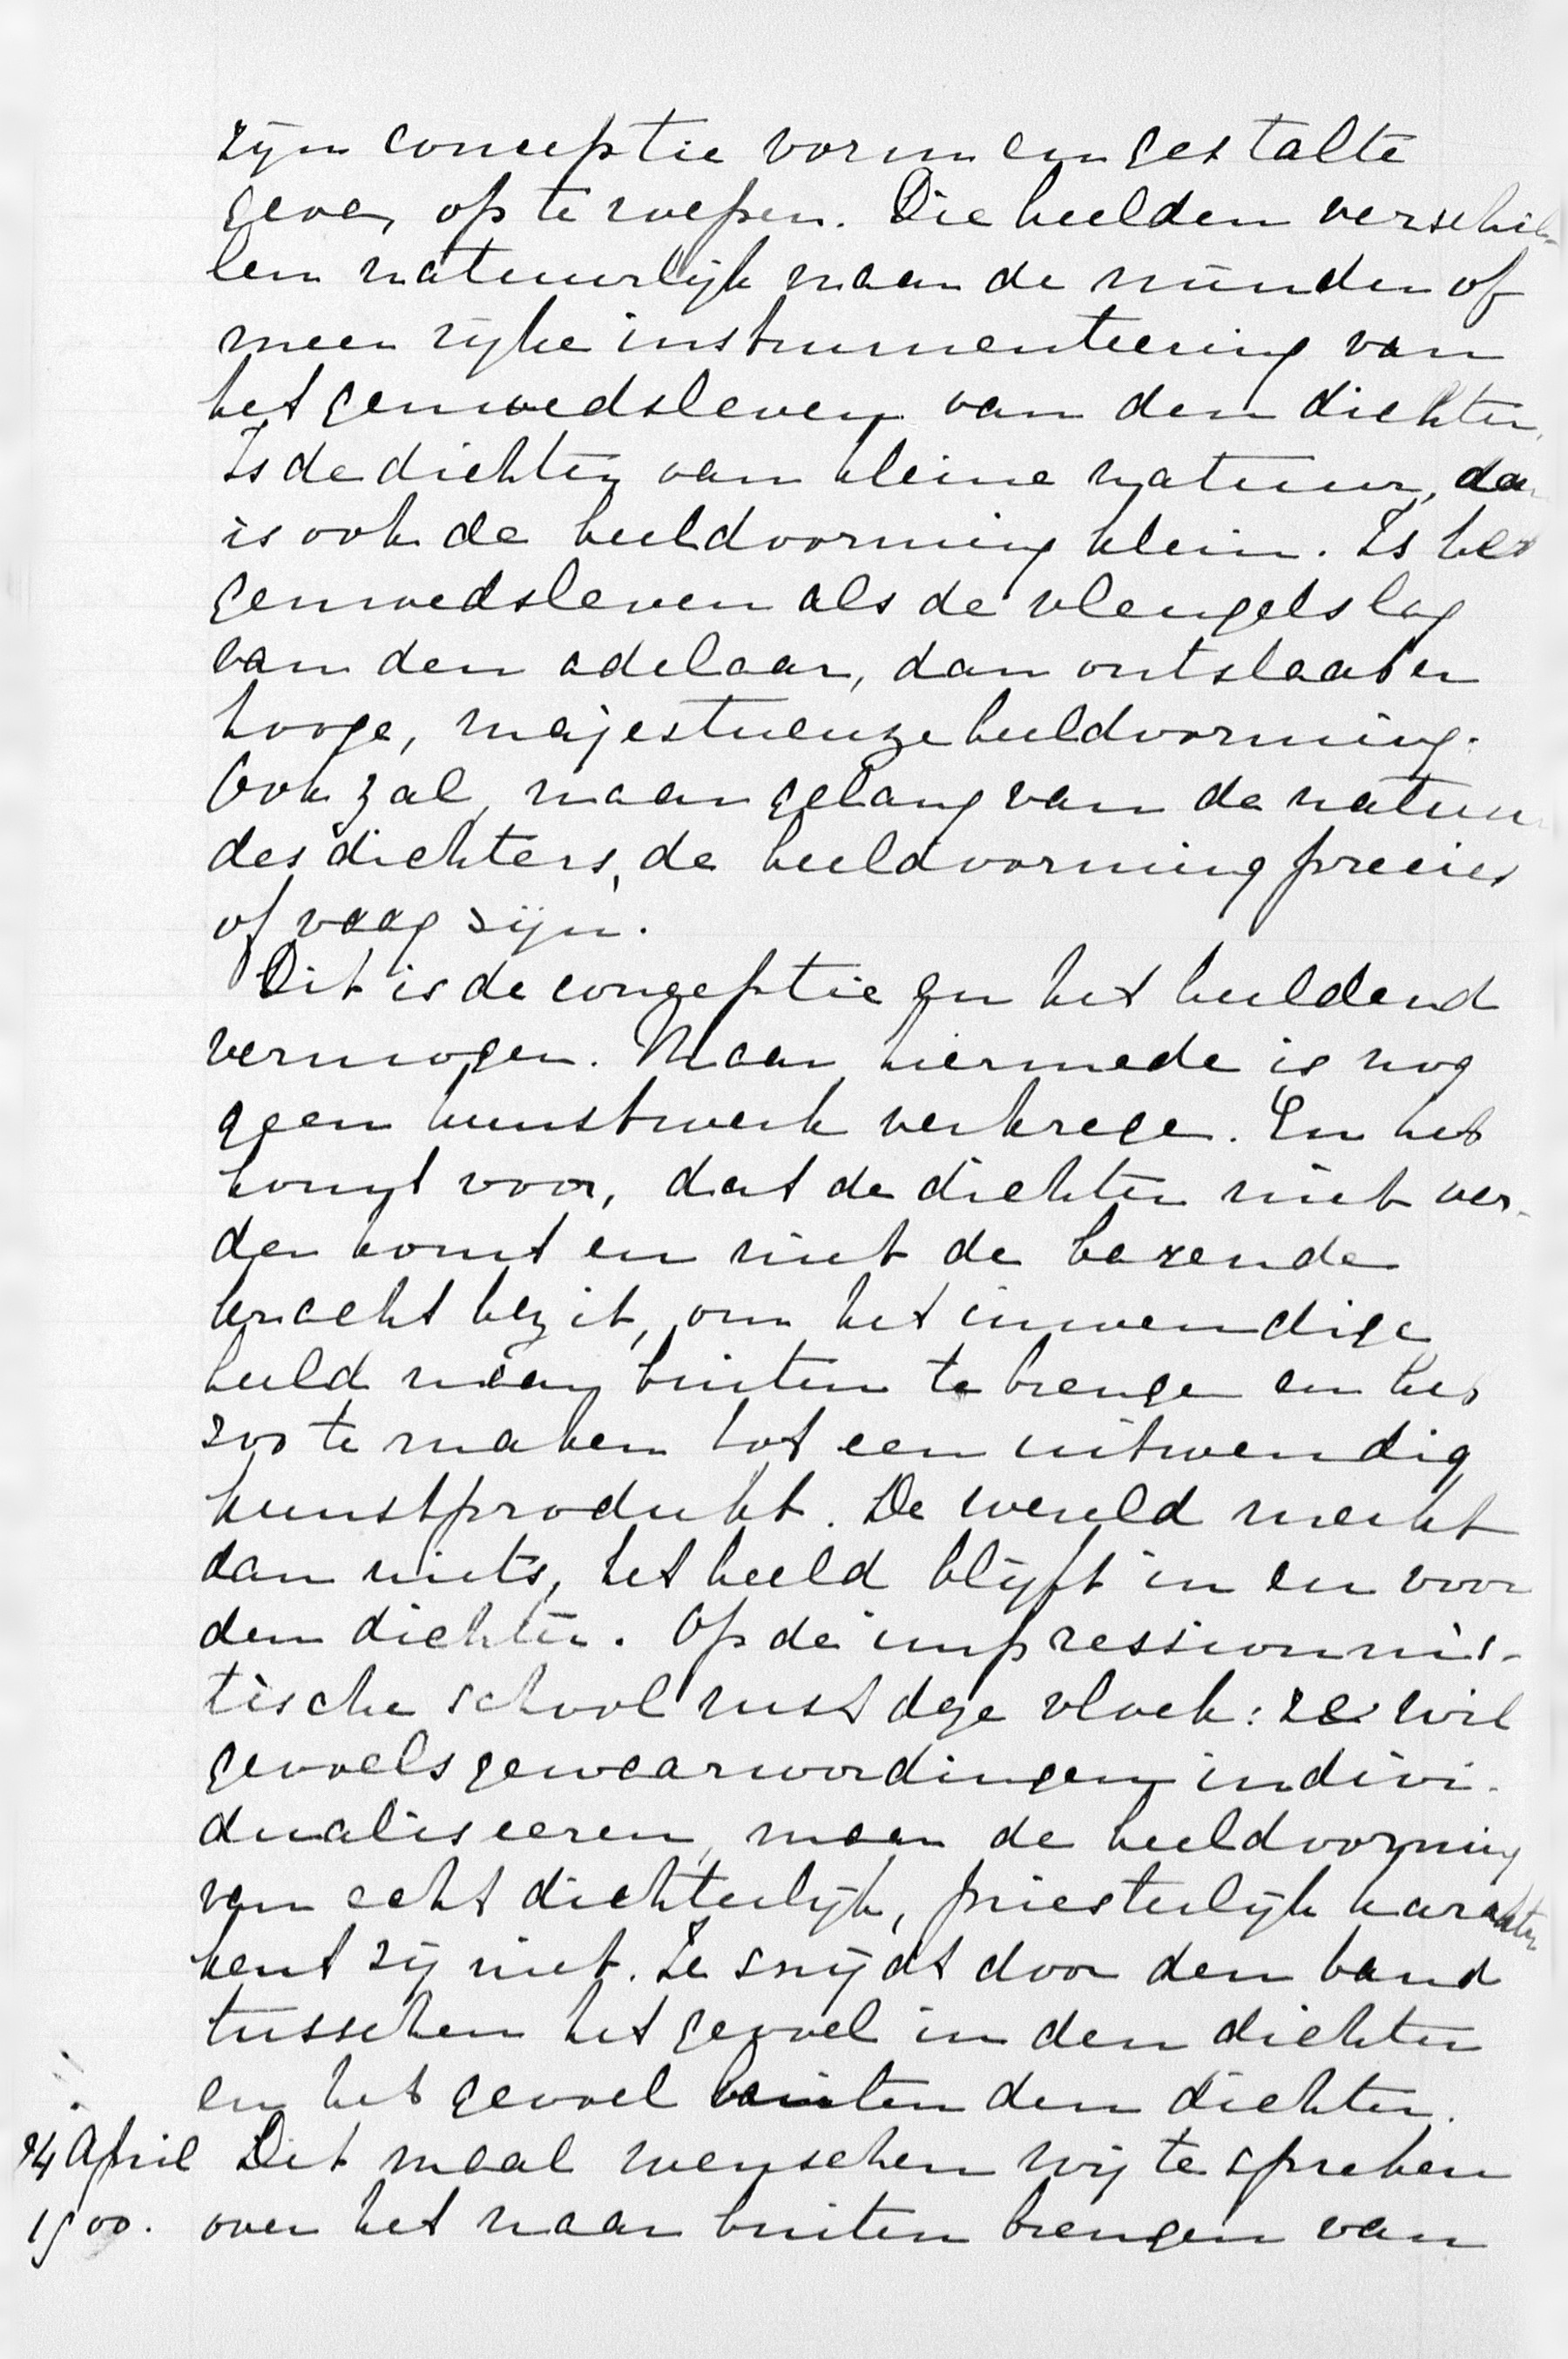 zijn conceptie vorm en gestalte
geven op te roepen. Die beelden verschil-
len natuurlijk naar de minder of
meer rijke instrumenteering van
het gemoedsleven van den dichter.
Is de dichter van kleine natuur, dan
is ook de beeldvorming klein. Is het
gemoedsleven als de vleugelslag
van den adelaar, dan ontstaat er
hooge, majestueuze beeldvorming.
Ook zal, naar gelang van de natuur
des dichters, de beeldvorming precies
of vaag zijn.
Dit is de conceptie en het beeldend
vermogen. Maar hiermede is nog
geen kunstwerk verkregen. En het
komt voor, dat de dichter niet ver-
der komt en niet de barende
kracht bezit, om het inwendige
beeld naar buiten te brengen en het
zoo te maken tot een uitwendig
kunstprodukt. De wereld merkt
dan niets, het beeld blijft in en voor
den dichter. Op de impressionnis-
tische school rust deze vloek: ze wil
gevoelsgewaarwordingen indivi-
dualiseeren, maar de beeldvorming
van echt dichterlijk, priesterlijk karakter
kent zij niet. Ze snijdt door den band
tusschen het gevoel in den dichter
en het gevoel buiten den dichter.
24 April Dit maal wenschen wij te spreken
1900. over het naar buiten brengen van